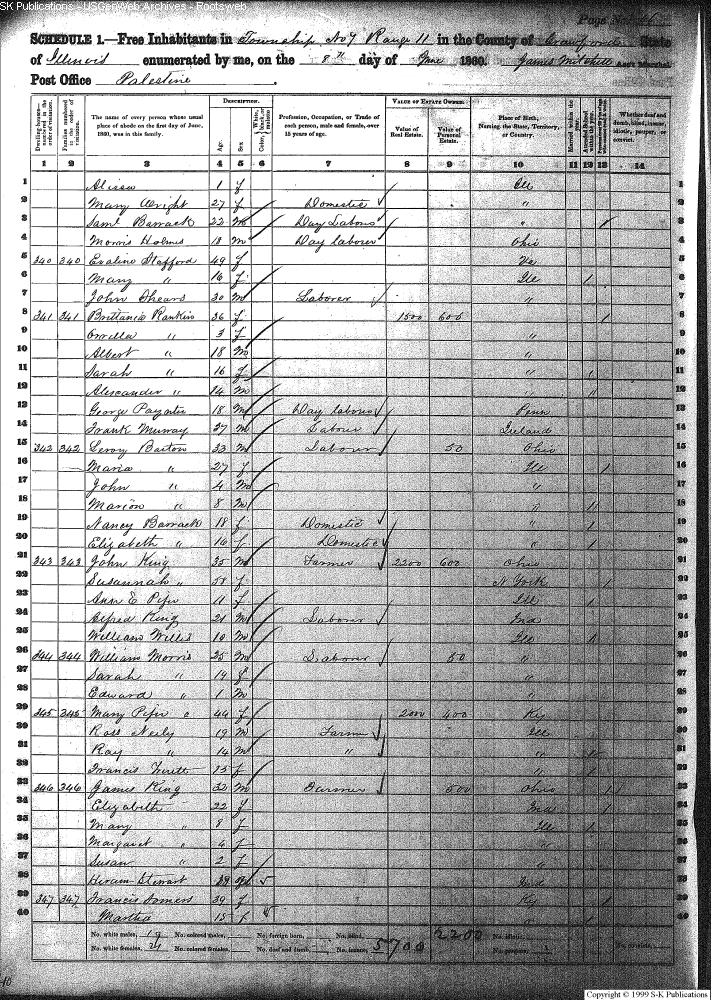 SK Publications - USGenWeb Archives - Rootsweb
Page No.
SCHEDULE 1.—Free Inhabitants in Township No 7 Range 11 in the County of Crawford State
of Illinois enumerated by me, on the 8th day of June 1860. James Mitchell Ass't Marshal.
Post Office Palestine.
Dwelling-houses—numbered in the order of visitation.
Families numbered in the order of visitation.
The name of every person whose usual place of abode on the first day of June, 1860, was in this family.
Description.
Age.
Sex
White, black, or mulatto
Color
Profession, Occupation, or Trade of each person, male and female, over 15 years of age.
Value of Estate Owned.
Value of Real Estate.
Value of Personal Estate.
Place of Birth, Naming the State, Territory, or Country.
Married within the year.
Whether deaf and dumb, blind, insane, idiotic, pauper, or convict.
1 2 3 4 5 6 7 8 9 10 11 12 13 14
1 1 f Ill 1
2 Mary Wright 27 f Domestic " 2
3 Saml Barrack 22 m Day Labour " / 3
4 Morris Holmes 18 m Day laborer Ohio 4
5 340 340 Evaline Stafford 49 f Va 5
6 Mary " 16 f Ill 1 6
7 John Shears 30 m Laborer " 7
8 341 341 Brittania Rankin 36 f 1500 600 " / 8
9 " 3 f " 9
10 Albert " 18 m " 10
11 Sarah " 16 f " 1 11
12 Alexander " 14 m " 12
13 George Paynter 18 m Day laborer Penn 13
14 Frank Murray 27 m Labour Ireland 14
15 342 342 Leroy Barton 33 m Labourer 50 Ohio 15
16 Maria " 27 f Ill / 16
17 John " 4 m " 17
18 Marion " 8 m " 18
19 Nancy Barrack 18 f Domestic " 1 19
20 Elizabeth " 16 f Domestic " 1 20
21 343 343 John King 35 m Farmer 2200 600 Ohio 21
22 Susannah " f N York / 22
23 Ann E Piper 11 f Ill 1 23
24 Alfred King 21 m Laborer Ind 24
25 William Willis 10 m Ill 1 25
26 344 344 William Morris 25 m Laborer 50 " 26
27 Sarah " 19 f " 27
28 Edward " 1 m 28
29 345 345 Mary Piper 44 f 2000 400 Ky 29
30 Ross Neily 19 m Farm Ill 30
31 Ray " 14 m " " 31
32 Francis 15 f " 1 32
33 346 346 James King 32 m Farmer 500 Ohio / 33
34 Elizabeth 22 f Ind / 34
35 Mary " 8 f Ill 1 35
36 Margaret " 4 f " 36
37 Susan " 2 f 37
38 Hiram Stewart 39 Ind 38
39 347 347 Francis Somers 39 f Ky / 39
40 Martha 15 f " 40
No. white males, 19 No. colored males, No. foreign born, No. blind, 2200 No. idiotic,
No. white females, 21 No. colored females, No. deaf and dumb, No. insane, 5700 No. paupers, No. convicts,
Copyright © 1999 S-K Publications